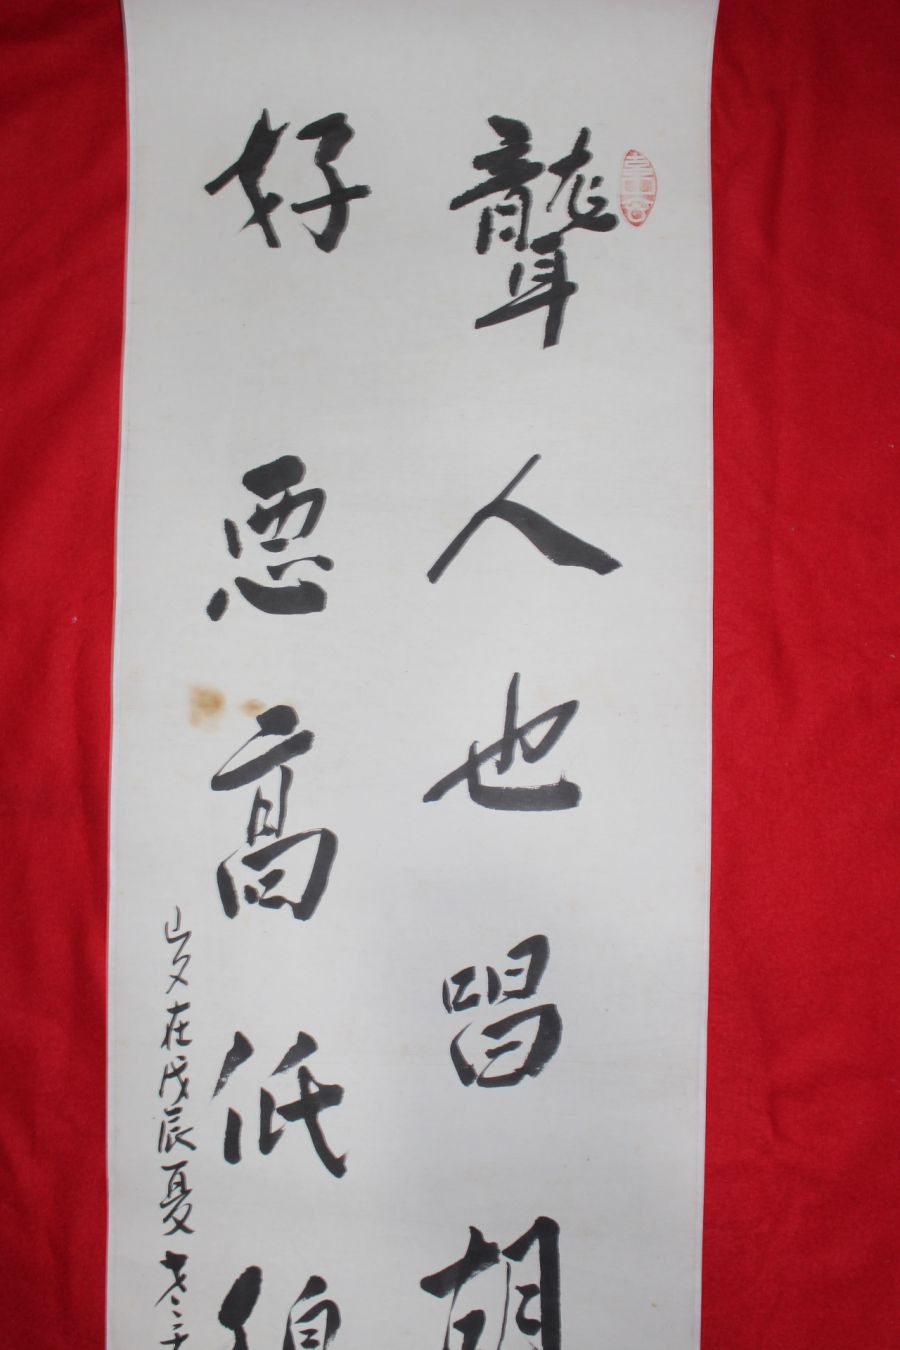 聾人也唱胡
好悪高低
岁在戊辰夏